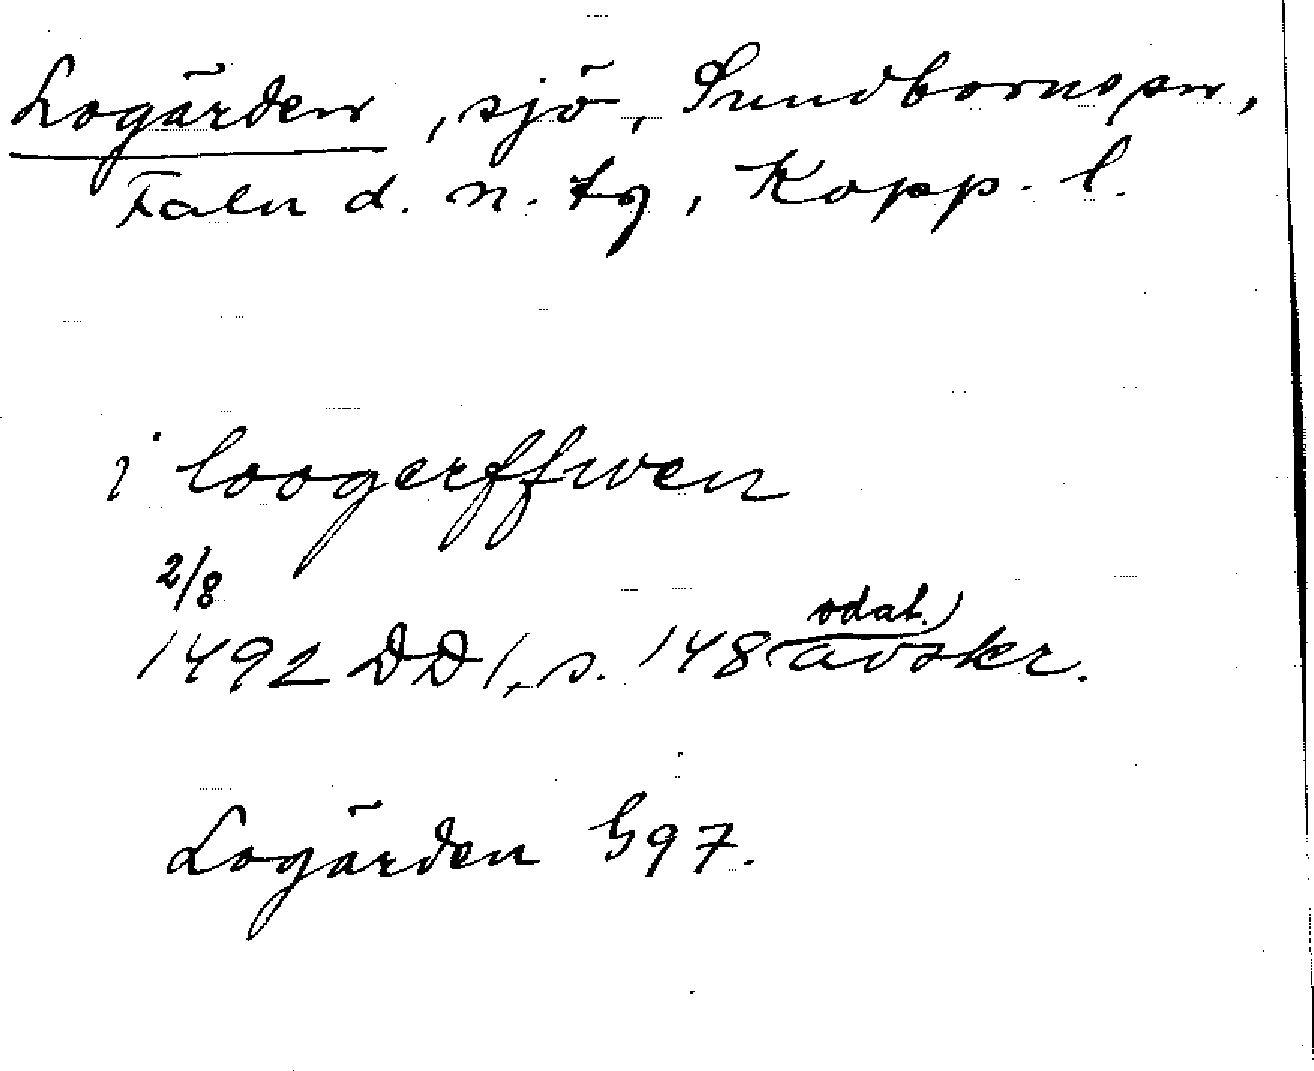 Logärden, sjö, Sundborns sn,
Falu d. n. tg, Kopp. l.
i loogerffwen
2/8
1492 DD 1, s. 148 (odat.) avskr.
Logärden G97.